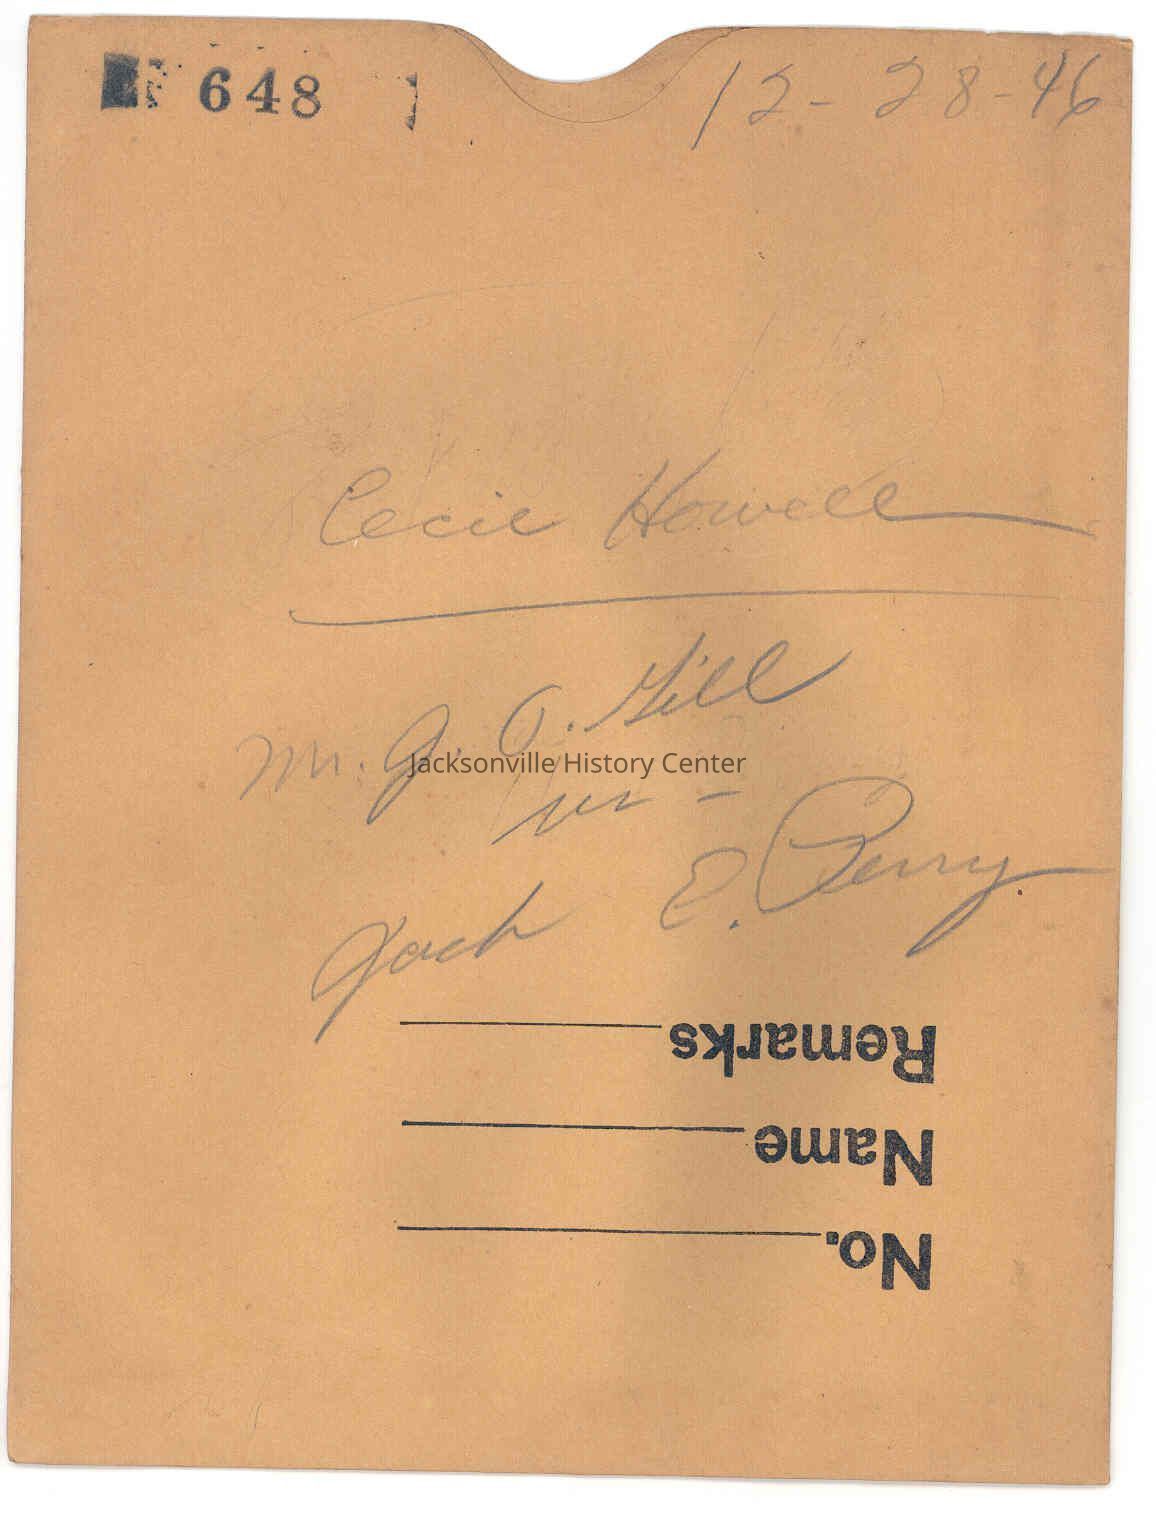 648
12-28-46
Cecil Howell
Mr. J. O. Gill
vs -
Jack E. Perry.
Jacksonville History Center
Remarks
Name
No.